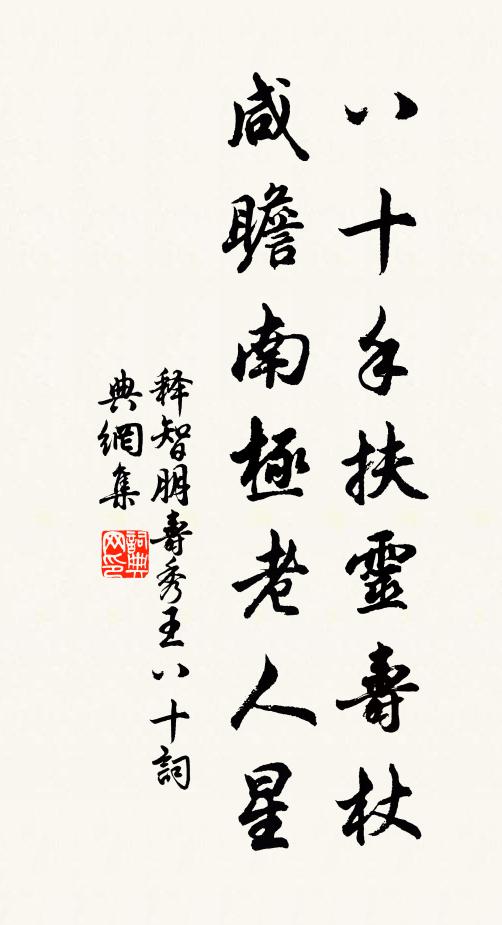 八十手扶靈壽杖
咸瞻南極老人星
释智朋壽秀王八十詞
典網集
詞典
网印